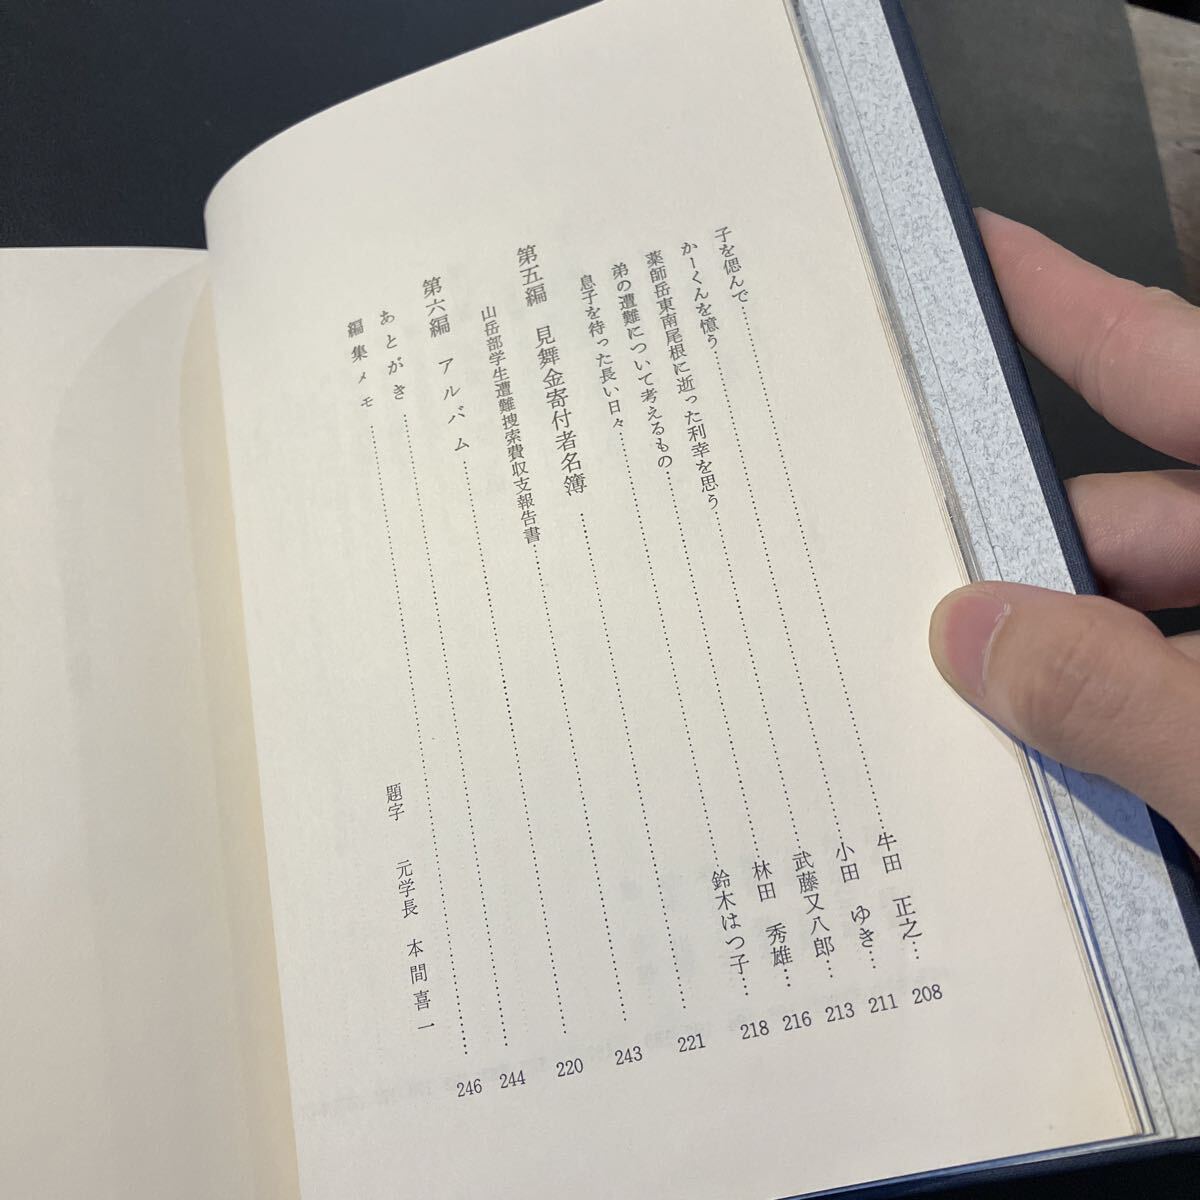 子を偲んで……牛田　正之…208
かーくんを憶う……小田　ゆき…211
薬師岳東南尾根に逝った利幸を思う……武藤又八郎…213
弟の遭難について考えるもの……林田　秀雄…216
息子を待った長い日々……鈴木はつ子…218
第五編　見舞金寄付者名簿……221
山岳部学生遭難捜索費収支報告書……243
第六編　アルバム……220
あとがき……244
編集メモ……246
題字　元学長　本間喜一